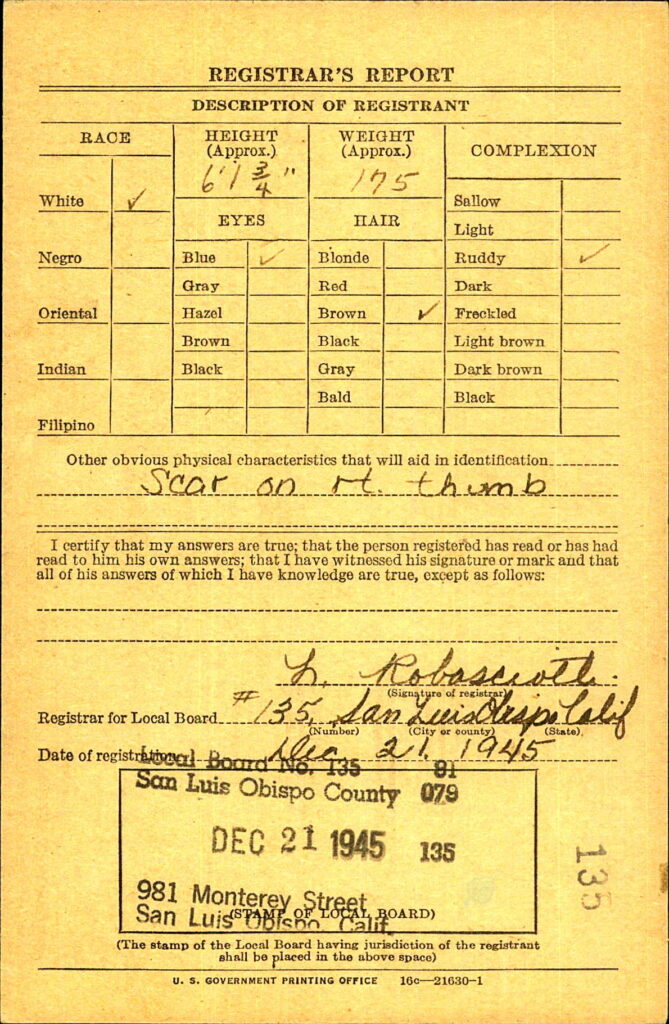 REGISTRAR'S REPORT
DESCRIPTION OF REGISTRANT
RACE
HEIGHT
(Approx.)
WEIGHT
(Approx.)
COMPLEXION
6' 1 3/4 "
175
White ✓
EYES
HAIR
Sallow
Light
Negro
Blue ✓
Blonde
Ruddy ✓
Gray
Red
Dark
Oriental
Hazel
Brown ✓
Freckled
Brown
Black
Light brown
Indian
Black
Gray
Dark brown
Bald
Black
Filipino
Other obvious physical characteristics that will aid in identification
Scar on rt. thumb
I certify that my answers are true; that the person registered has read or has had
read to him his own answers; that I have witnessed his signature or mark and that
all of his answers of which I have knowledge are true, except as follows:
(Signature of registrar)
Registrar for Local Board #135, San Luis Obispo Calif
(Number) (City or county) (State)
Date of registration Dec 21, 1945
Local Board No. 135 81
San Luis Obispo County 079
DEC 21 1945 135
981 Monterey Street
San Luis Obispo, Calif.
(STAMP OF LOCAL BOARD)
135
(The stamp of the Local Board having jurisdiction of the registrant
shall be placed in the above space)
U. S. GOVERNMENT PRINTING OFFICE 16c—21630-1